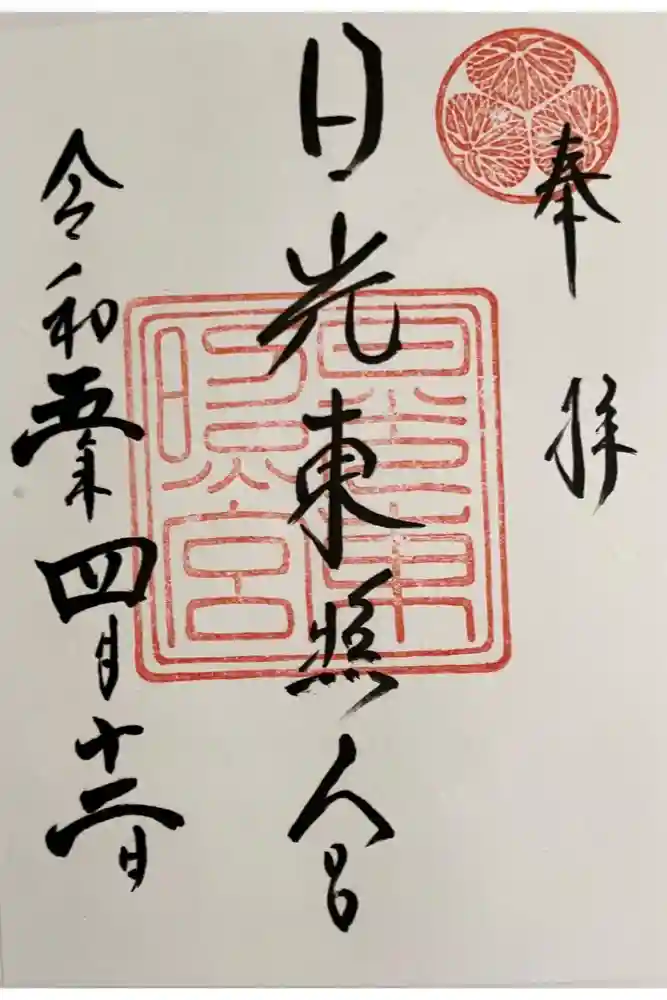 奉拝
日光東照宮
日光東照宮
令和五年四月十二日